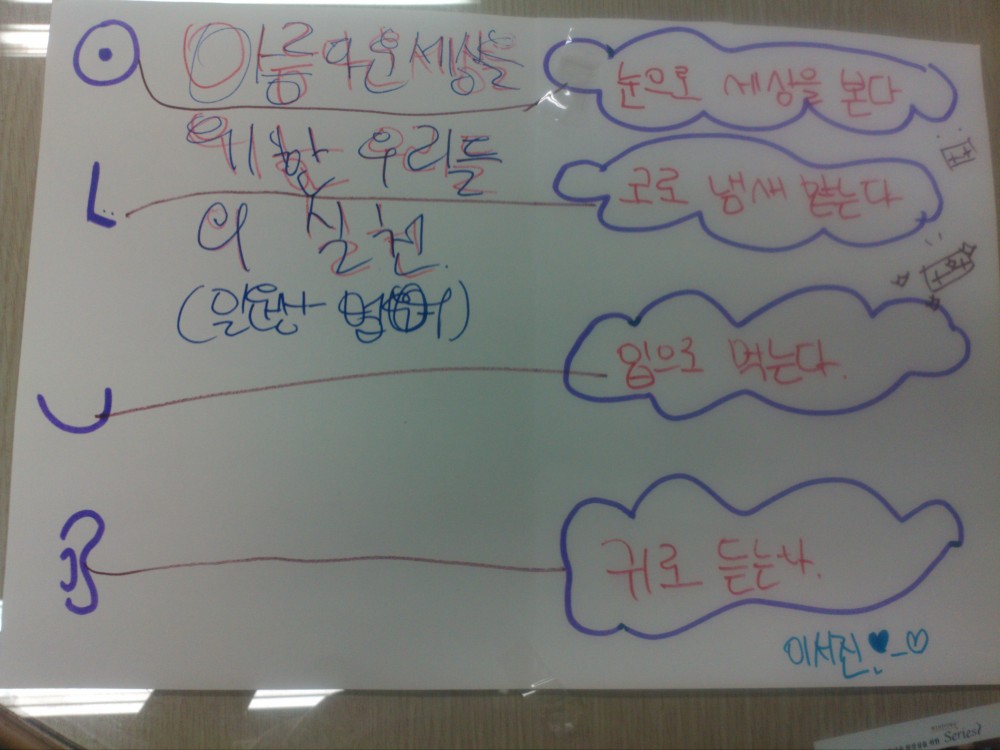 아름다운세상을
위한 우리들
의 실천.
눈으로 세상을 본다
코로 냄새 맡는다
입으로 먹는다.
귀로 듣는다.
이서진
Series7